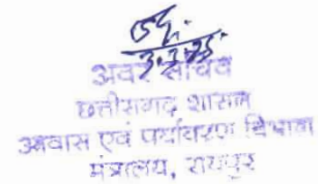 3.3.25
अवर सचिव
छत्तीसगढ़ शासन
आवास एवं पर्यावरण विभाग
मंत्रालय, रायपुर